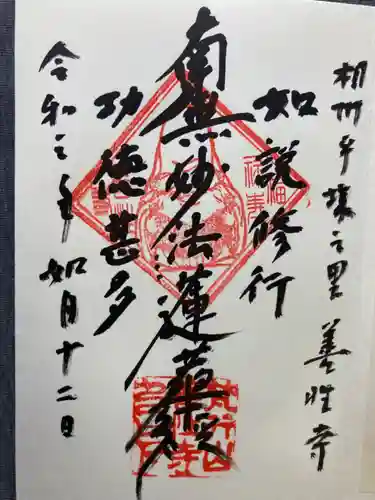 相州平塚之里 善性寺
如説修行
南無妙法蓮華經
功徳甚多
令和二年 如月十二日